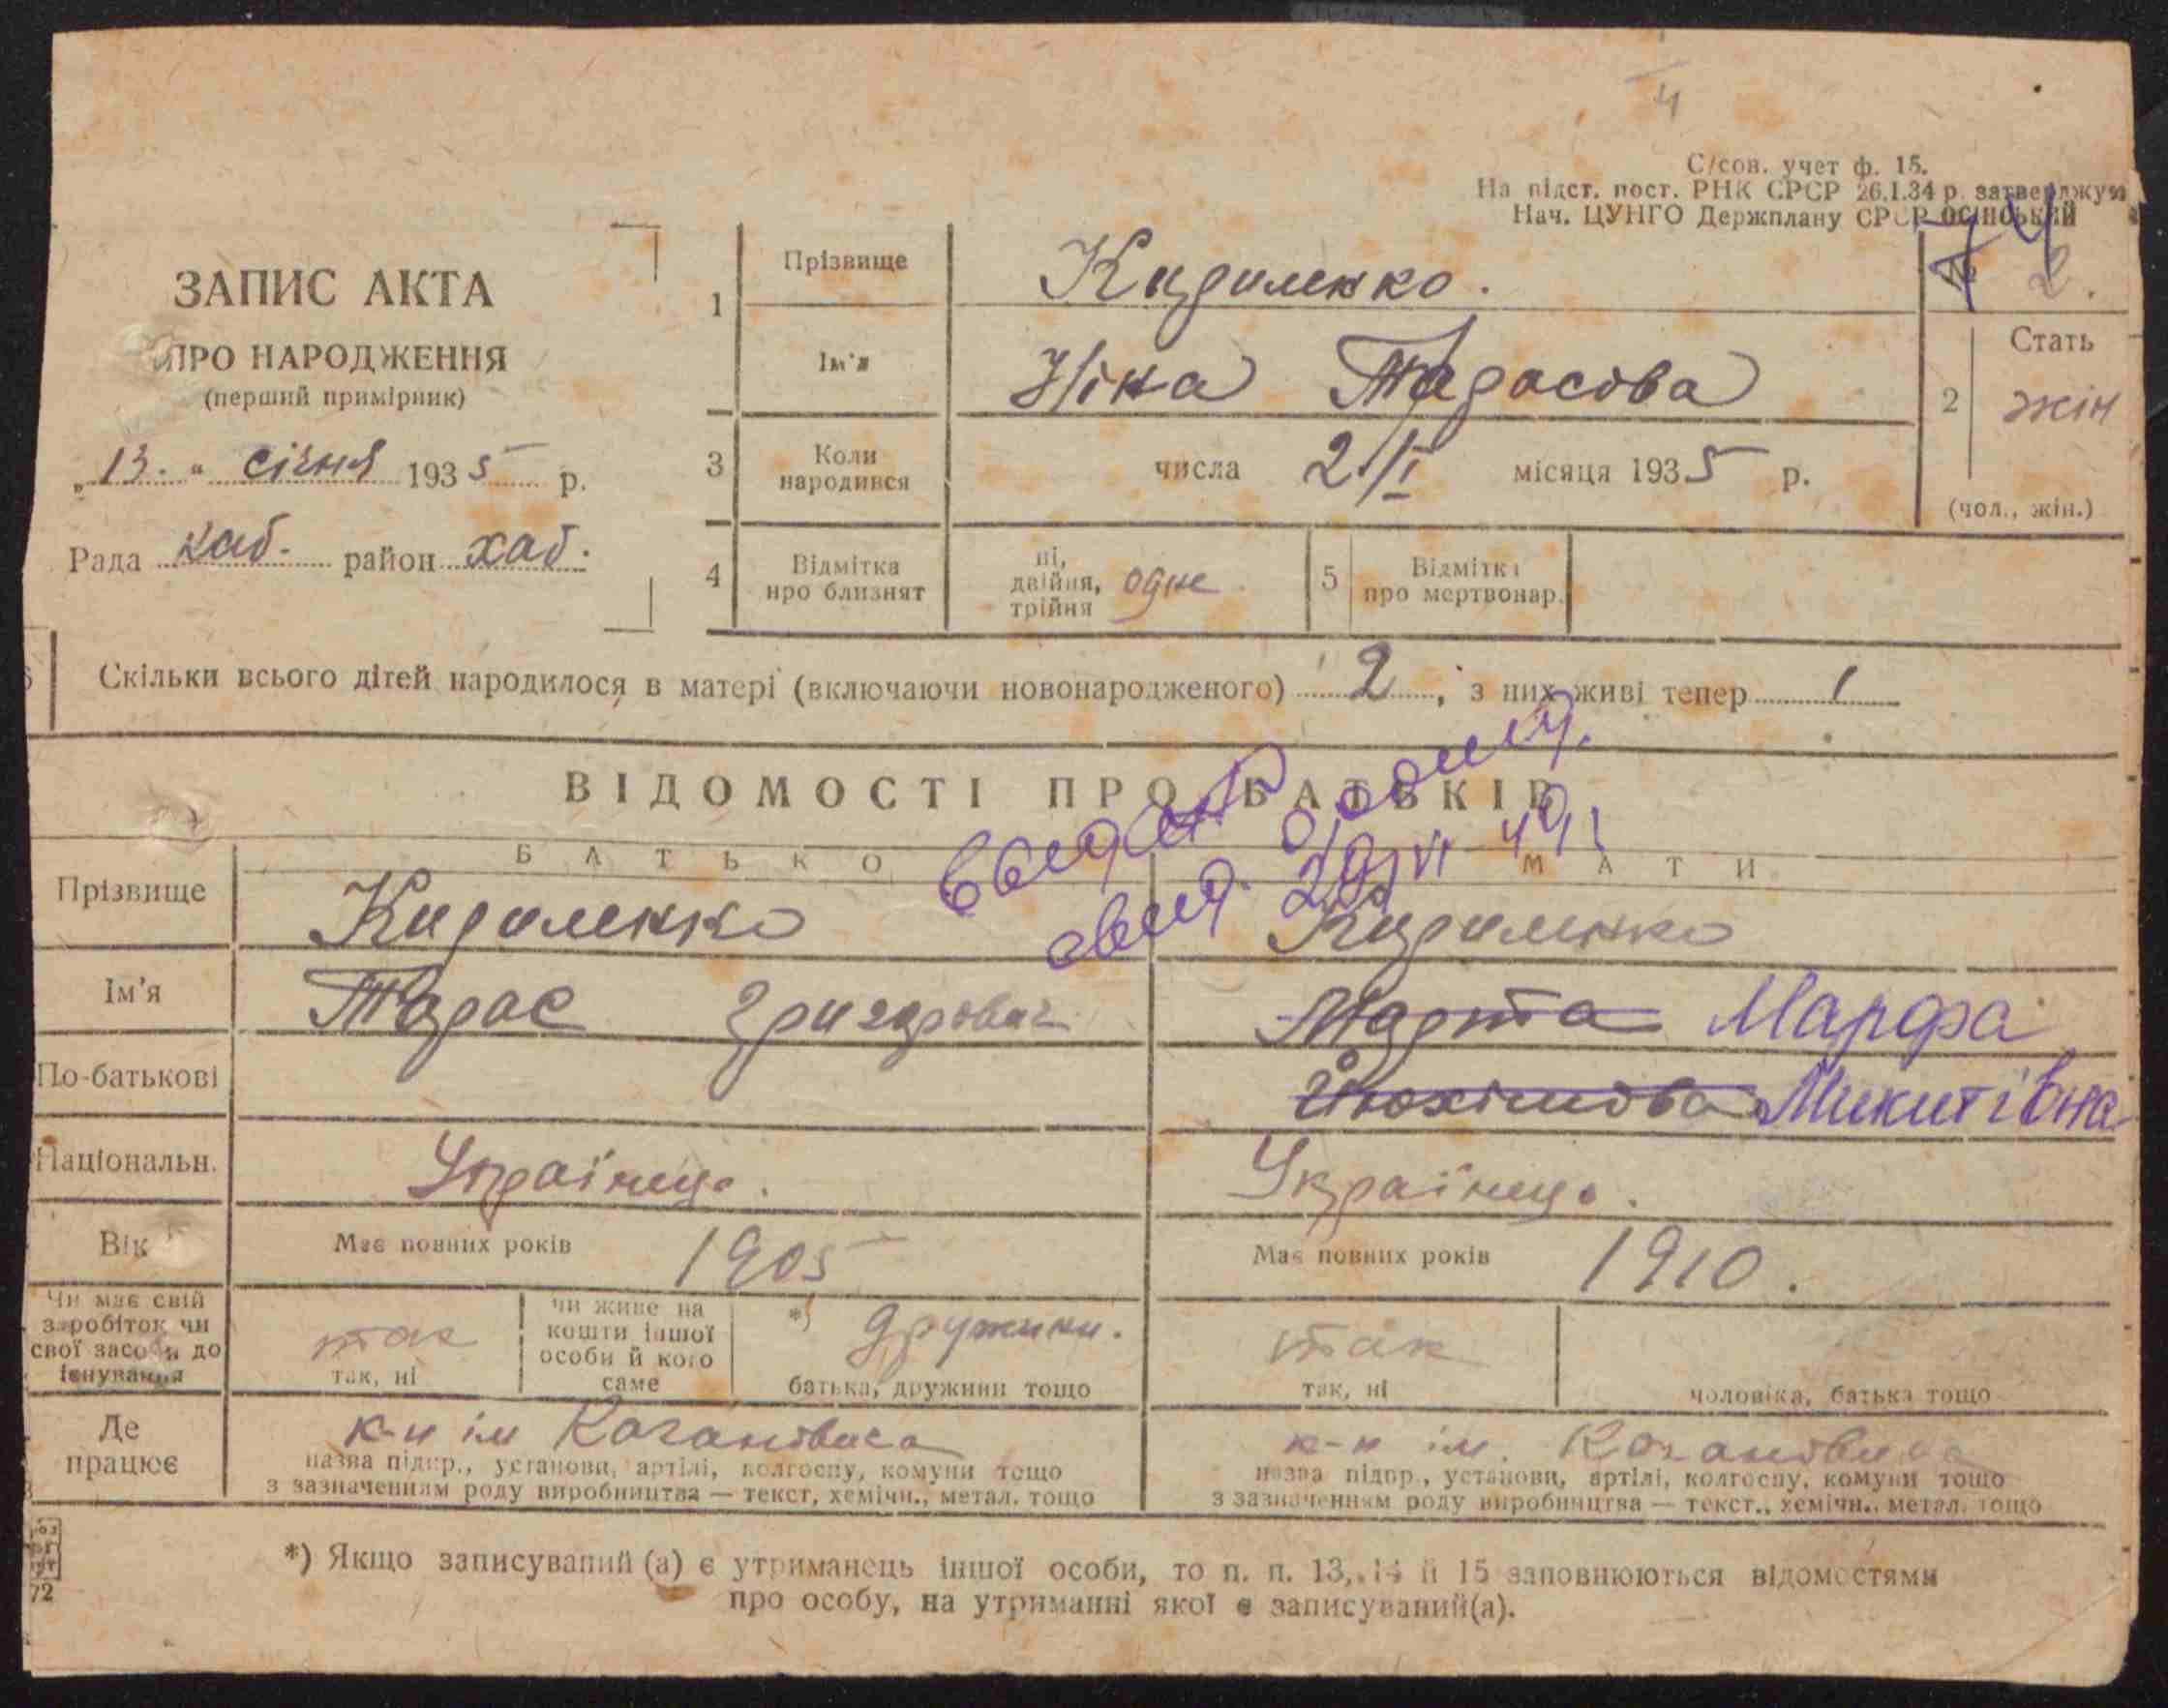 4
С/сов. учет ф. 15.
На підст. пост. РНК СРСР 26.1.34 р. затверджую
Нач. ЦУНГО Держплану СРСР ОСІНСЬКИЙ
ЗАПИС АКТА
ПРО НАРОДЖЕННЯ
(перший примірник)
„13." січня 1935 р.
Рада хаб. район хаб.
1 Прізвище Кириленко.
№ 2.
Ім'я Ніна Тарасова
2 Стать жін
(чол., жін.)
3 Коли народився числа 2/I місяця 1935 р.
4 Відмітка про близнят ні, двійня, трійня одне.
5 Відмітка про мертвонар.
Скільки всього дітей народилося в матері (включаючи новонародженого) 2, з них живі тепер 1
ВІДОМОСТІ ПРО БАТЬКІВ
БАТЬКО МАТИ
29/VI 40
Прізвище Кириленко Кириленко
Ім'я Тарас Григорович Марта Марфа
По-батькові Микитівна
Національн. Українць. Українць.
Вік Має повних років 1905 Має повних років 1910.
Чи має свій заробіток чи свої засоби до існування
так
так, ні
чи живе на кошти іншої особи й кого саме
*) дружини.
батька, дружини тощо
так
так, ні
чоловіка, батька тощо
Де працює
к-п ім Кагановича к-п ім. Кагановича
назва підпр., установи, артілі, колгоспу, комуни тощо
з зазначенням роду виробництва — текст, хемічн., метал. тощо
назва підпр., установи, артілі, колгоспу, комуни тощо
з зазначенням роду виробництва — текст., хемічн., метал. тощо
72
*) Якщо записуваний (а) є утриманець іншої особи, то п. п. 13, 14 й 15 заповнюються відомостями
про особу, на утриманні якої є записуваний(а).